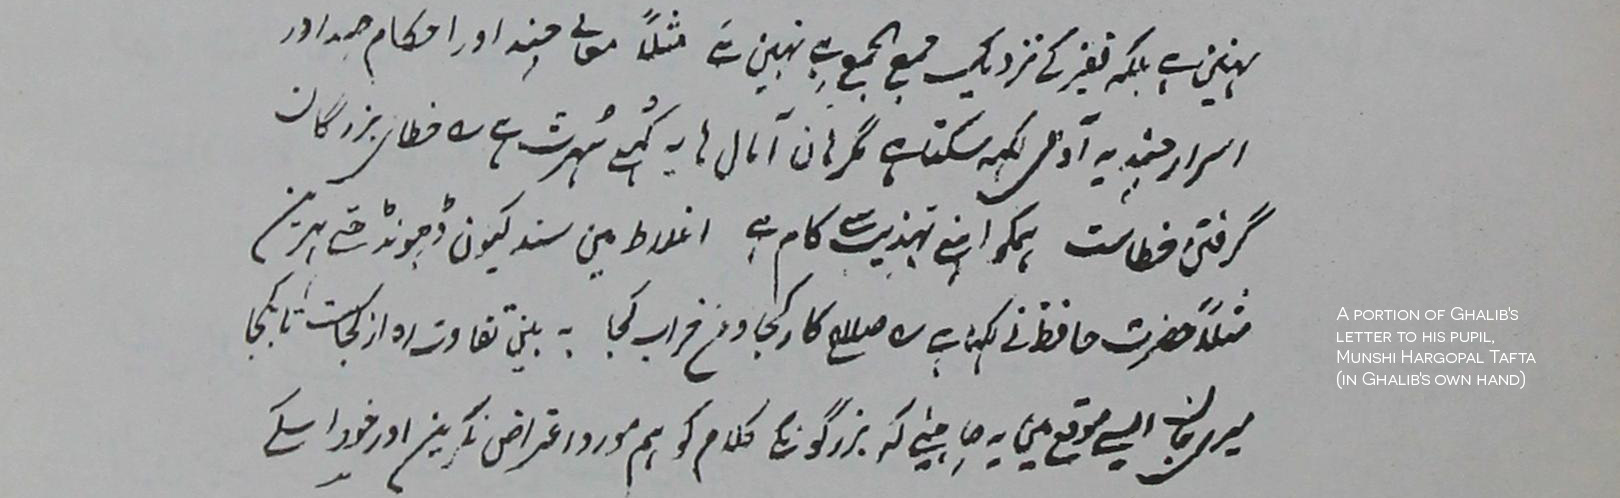 نہین ہے بلکہ فقیر کے نزدیک جمع الجمع بھی نہین ہے مثلاً معانی چند اور احکام چند اور
اسرار چند یہ آدمی لکھ سکتا ہے مگر ہان آمال ہا یہ شہرت ہے ؎ خطای بزرگان
گرفتن خطاست ہمکو اپنی تہذیب سے کام ہے اغلاط مین سند کیون ڈھونڈھتے پھرین
مثلاً حضرت حافظ نے لکھا ہے ؎ صلاح کار کجا و من خراب کجا بہ بین تفاوت رہ از کجاست تا بکجا
میری جان ایسے موقع مین یہ چاہیئے کہ بزرگونکے کلام کو ہم مورد اعتراض نکرین اور خود اسکے
A portion of Ghalib's
letter to his pupil,
Munshi Hargopal Tafta
(in Ghalib's own hand)